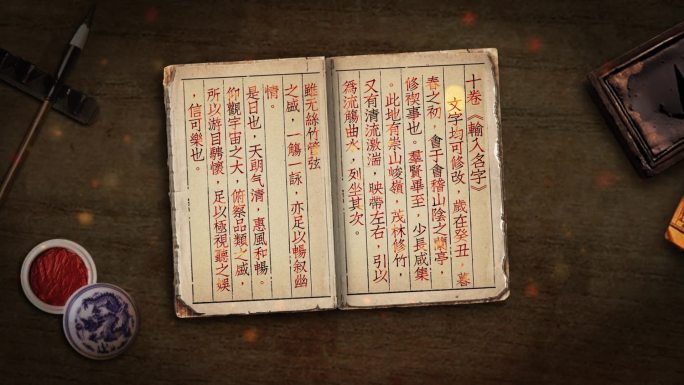 十卷《輸入名字》
文字均可修改，歲在癸丑，暮
春之初，會于會稽山陰之蘭亭，
修禊事也。羣賢畢至，少長咸集
。此地有崇山峻嶺，茂林修竹，
又有清流激湍，映帶左右，引以
為流觴曲水，列坐其次。
雖无絲竹管弦
之盛，一觴一詠，亦足以暢叙幽
情。
是日也，天朗气清，惠風和暢。
仰觀宇宙之大，俯察品類之盛，
所以游目騁懷，足以極視聽之娛
，信可樂也。